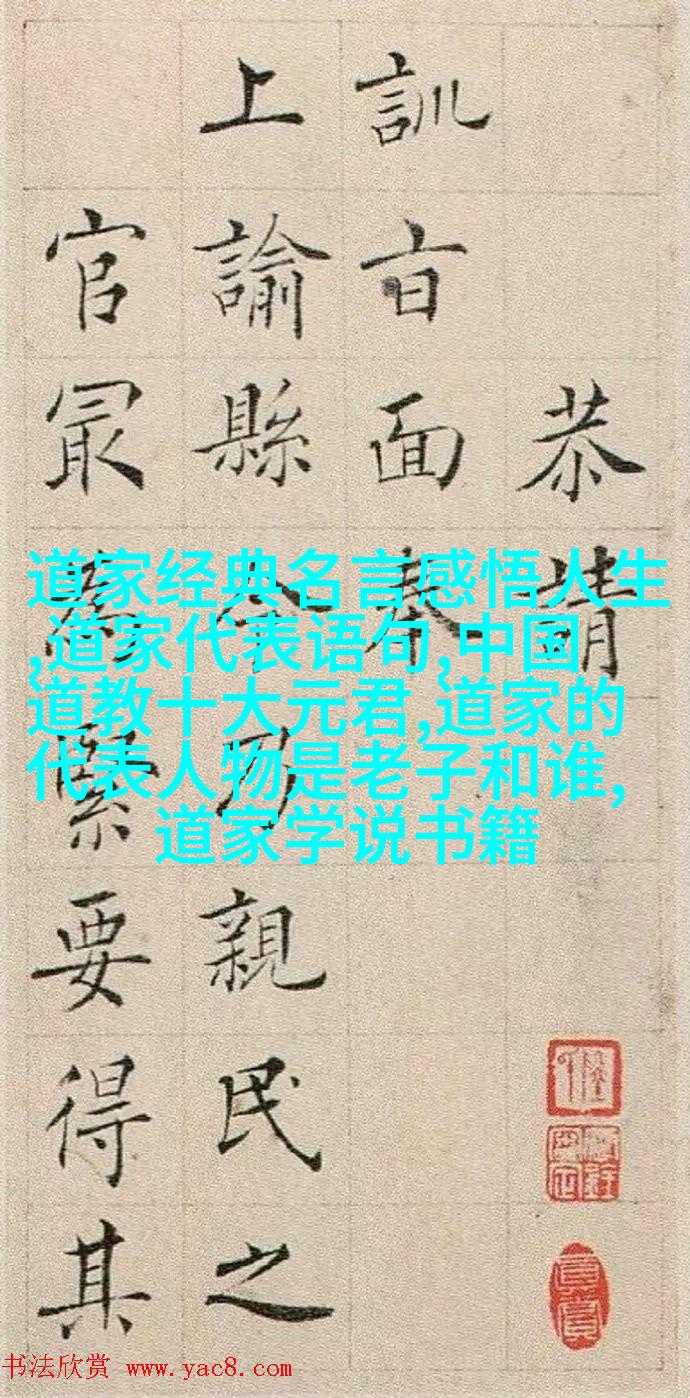 恭請
訓㫖面奏
上諭縣令乃親民之
官冣為緊要得其
道家经典名言感悟人生
,道家代表语句,中国
道教十大元君,道家的
代表人物是老子和谁,
道家学说书籍
书法欣赏 www.yac8.com